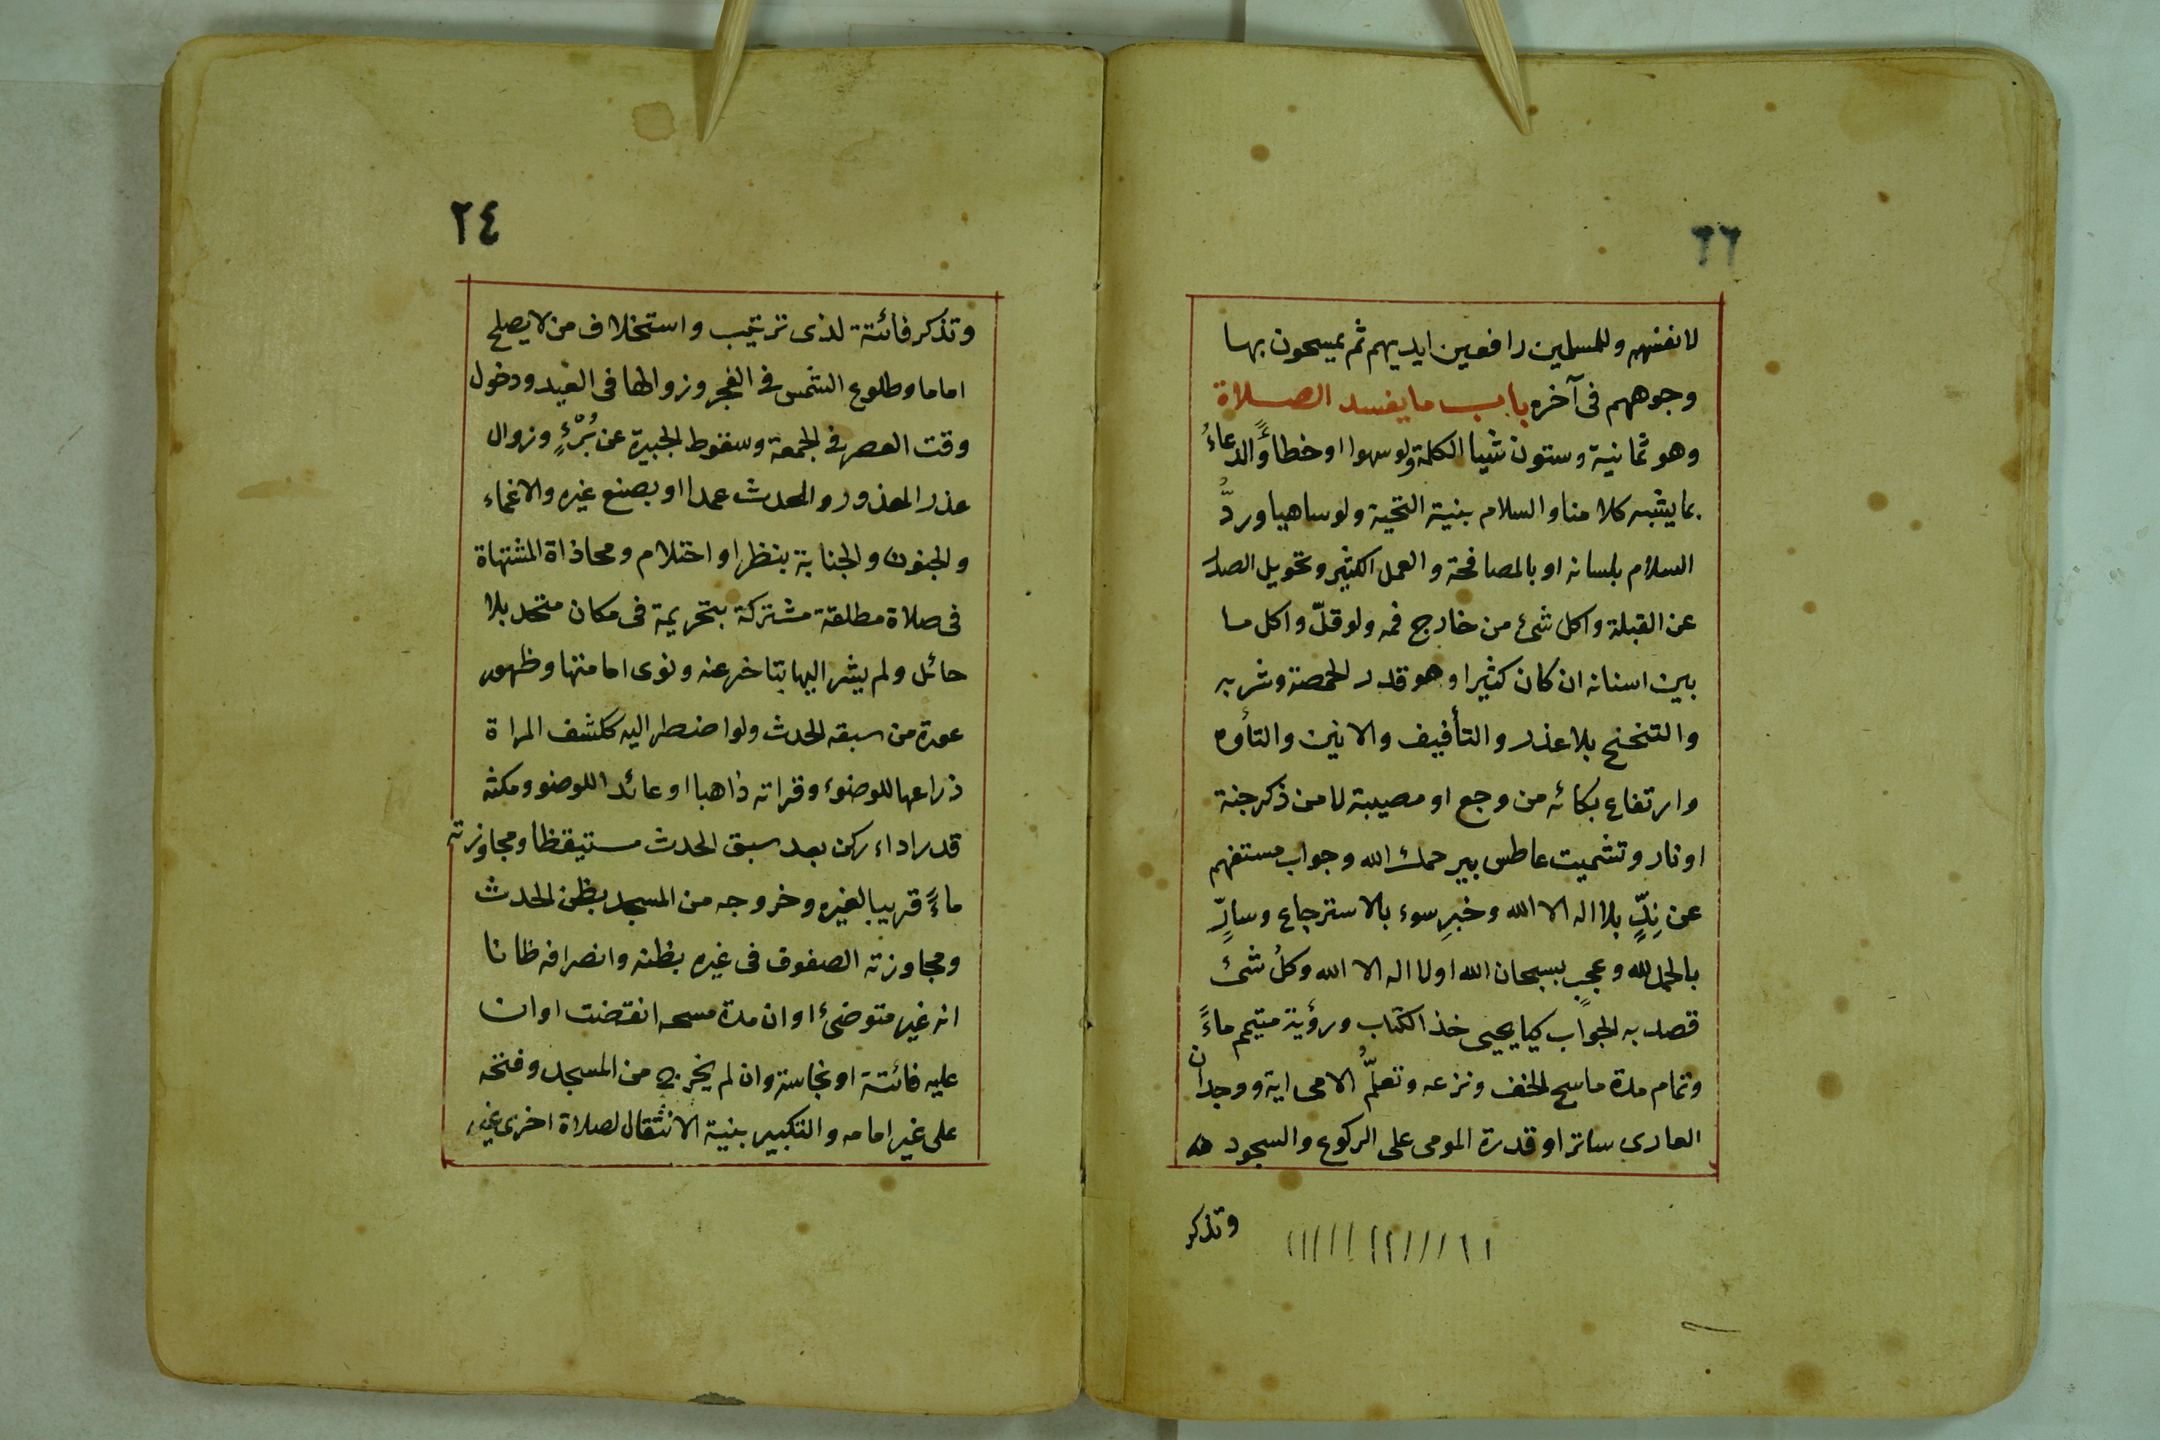 ٦٦
لانفسهم وللمسلمين رافعين ايديهم ثم يمسحون بها
وجوههم فى آخره باب ما يفسد الصلاة
وهو ثمانية وستون شيا الكلمة ولو سهوا او خطأً والدعاءُ
بما يشبه كلامنا والسلام بنية التحية ولو ساهيا وردُّ
السلام بلسانه او بالمصافحة والعمل الكثير وتحويل الصدر
عن القبلة واكل شئ من خارج فمه ولو قلّ واكل ما
بين اسنانه ان كان كثيرا وهو قدر الحمصة وشربه
والتنحنح بلا عذر والتأفيف والانين والتأوه
وارتفاع بكائه من وجع او مصيبة لا من ذكر جنة
او نار وتشميت عاطس بيرحمك الله وجواب مستفهم
عن نِدٍّ بلا اله الا الله وخبرِ سوء بالاسترجاع وسارٍّ
بالحمد لله وعجبٍ بسبحان الله او لا اله الا الله وكلُ شئ
قصد به الجواب كيا يحيى خذ الكتاب ورؤية متيمم ماءً
وتمام مدة ماسح الخف ونزعه وتعلّمُ الامى اية ووجدان
العارى ساترا وقدرة المومى على الركوع والسجود
وتذكر
٢٤
وتذكر فائتة لذى ترتيب واستخلاف من لا يصلح
اماما وطلوع الشمس فى الفجر وزوالها فى العيد ودخول
وقت العصر فى الجمعة وسقوط الجبيرة عن بُرْءٍ وزوال
عذر المعذور والحدث عمدا او بصنع غيره والاغماء
والجنون والجنابة بنظر او احتلام ومحاذاة المشتهاة
فى صلاة مطلقة مشتركة بتحريمة فى مكان متحد بلا
حائل ولم يشر اليها بتاخر عنه ونوى امامتها وظهور
عورة من سبقه الحدث ولو اضطر اليه ككشف المراة
ذراعها للوضوء وقراته ذاهبا او عائدا للوضو ومكثه
قدر اداء ركن بعد سبق الحدث مستيقظا ومجاوزته
ماءً قريبا لغيره وخروجه من المسجد بظن الحدث
ومجاوزته الصفوف فى غيره بظنه وانصرافه ظانا
انه غير متوضئ او ان مدة مسحه انقضت او ان
عليه فائتة او نجاسة وان لم يخرج من المسجد وفتحه
على غير امامه والتكبير بنية الانتقال لصلاة اخرى غير